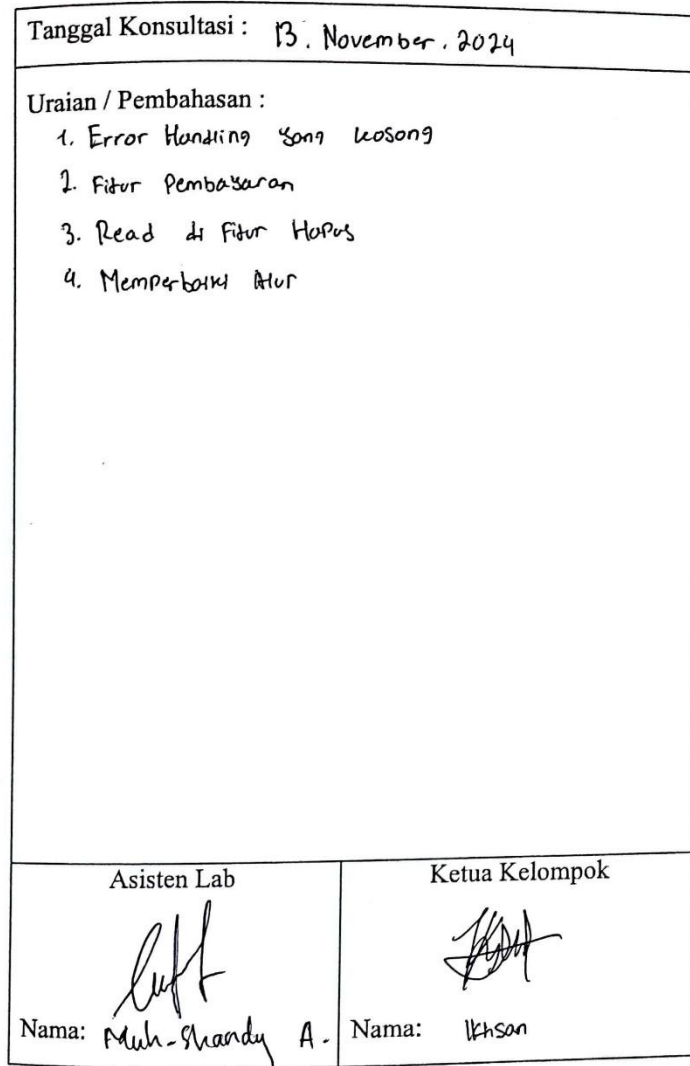 Tanggal Konsultasi : 13. November. 2024
Uraian / Pembahasan :
1. Error Handling yang kosong
2. Fitur Pembayaran
3. Read di Fitur Hapus
4. Memperbaiki Alur
Asisten Lab
Ketua Kelompok
Nama: Muh-Shandy A.
Nama: Ikhsan